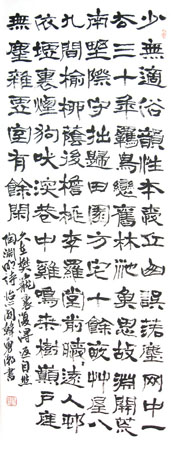 少無適俗韻性本愛丘山誤落塵网中一
去三十年羈鳥戀舊林池魚思故淵開荒
南野際守拙歸田園方宅十餘畝草屋八
九間榆柳蔭後檐桃李羅堂前曖遠人邨
依墟裏煙狗吠深巷中鳴樹巔戶庭
無塵雜虛室有餘閒
久在樊籠裏復得返自然
陶淵明詩書